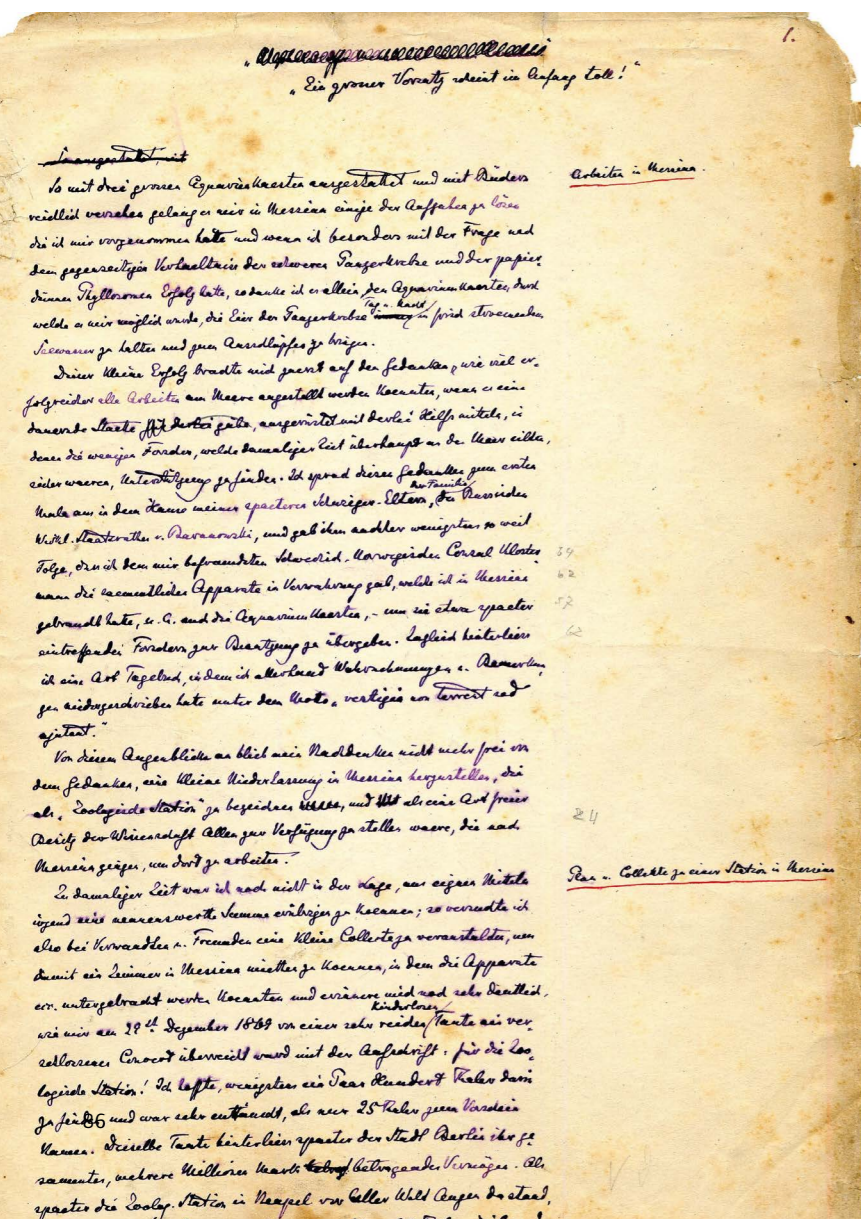 1.
„Ein grosser Vorsatz scheint im Anfang toll!"
So mit drei grossen Aquarienkaesten ausgestattet und mit Büchern
Arbeiten in Messina.
reichlich versehen gelang es mir in Messina einige der Aufgaben zu lösen
die ich mir vorgenommen hatte und wenn ich besonders mit der Frage nach
dem gegenseitigen Verhaeltniss der schweren Panzerkrebse und der papier-
dünnen Phyllosomen Erfolg hatte, so danke ich es allein den Aquarienkaesten, durch
welche es mir möglich wurde, die Eier der Panzerkrebse Tag u. Nacht in frisch stroemenden
Seewasser zu halten und zum Ausschlüpfen zu bringen.
Dieser kleine Erfolg brachte mich zuerst auf den Gedanken, wie viel er-
folgreicher alle Arbeiten am Meere angestellt werden koennten, wenn es eine
dauernde Staette gäbe, ausgerüstet mit derlei Hilfsmitteln, in
denen die wenigen Forscher, welche damaliger Zeit überhaupt an das Meer eilten,
sicher waeren, Unterstützung zu finden. Ich sprach diesen Gedanken zum ersten
Male aus in dem Hause meiner spaeteren Schwieger-Eltern, der Familie des Russischen
Wirkl. Staatsraths v. Baranowski, und gab ihm nachher wenigstens so weit
Folge, dass ich dem mir befreundeten Schwedisch-Norwegischen Consul Kloster-
34
mann die saemmtlichen Apparate in Verwahrung gab, welche ich in Messina
62
gebraucht hatte, u. A. auch die Aquarienkaesten, – um sie etwa spaeter
57
eintreffenden Forschern zur Benutzung zu übergeben. Zugleich hinterliess
62
ich eine Art Tagebuch, in dem ich allerhand Wahrnehmungen u. Bemerkun-
gen niedergeschrieben hatte unter dem Motto „vestigia non terrent sed
ajutant."
Von diesem Augenblicke an blieb mein Nachdenken nicht mehr frei von
dem Gedanken, eine kleine Niederlassung in Messina herzustellen, die
als „Zoologische Station" zu bezeichnen, und als eine Art freier
24
Besitz der Wissenschaft Allen zur Verfügung zu stellen waere, die nach
Messina gingen, um dort zu arbeiten.
Plan u. Collekte zu einer Station in Messina
Zu damaliger Zeit war ich noch nicht in der Lage, aus eignen Mitteln
irgend eine nennenswerthe Summe erübrigen zu koennen; so versuchte ich
also bei Verwandten u. Freunden eine kleine Collecte zu veranstalten, um
damit ein Zimmer in Messina miethen zu koennen, in dem die Apparate
etc. untergebracht werden koennten und erinnere mich noch sehr deutlich,
wie mir am 29st Dezember 1869 von einer sehr reichen kinderlosen Tante ein ver-
schlossenes Couvert überreicht ward mit der Aufschrift: für die Zoo-
logische Station! Ich hoffte, wenigstens ein Paar Hundert Thaler darin
zu finden und war sehr enttäuscht, als nur 25 Thaler zum Vorschein
kamen. Dieselbe Tante hinterliess spaeter der Stadt Berlin ihr ge-
sammtes, mehrere Millionen Mark betragendes Vermögen. Als
spaeter die Zoolog. Station in Neapel vor aller Welt Augen da stand,